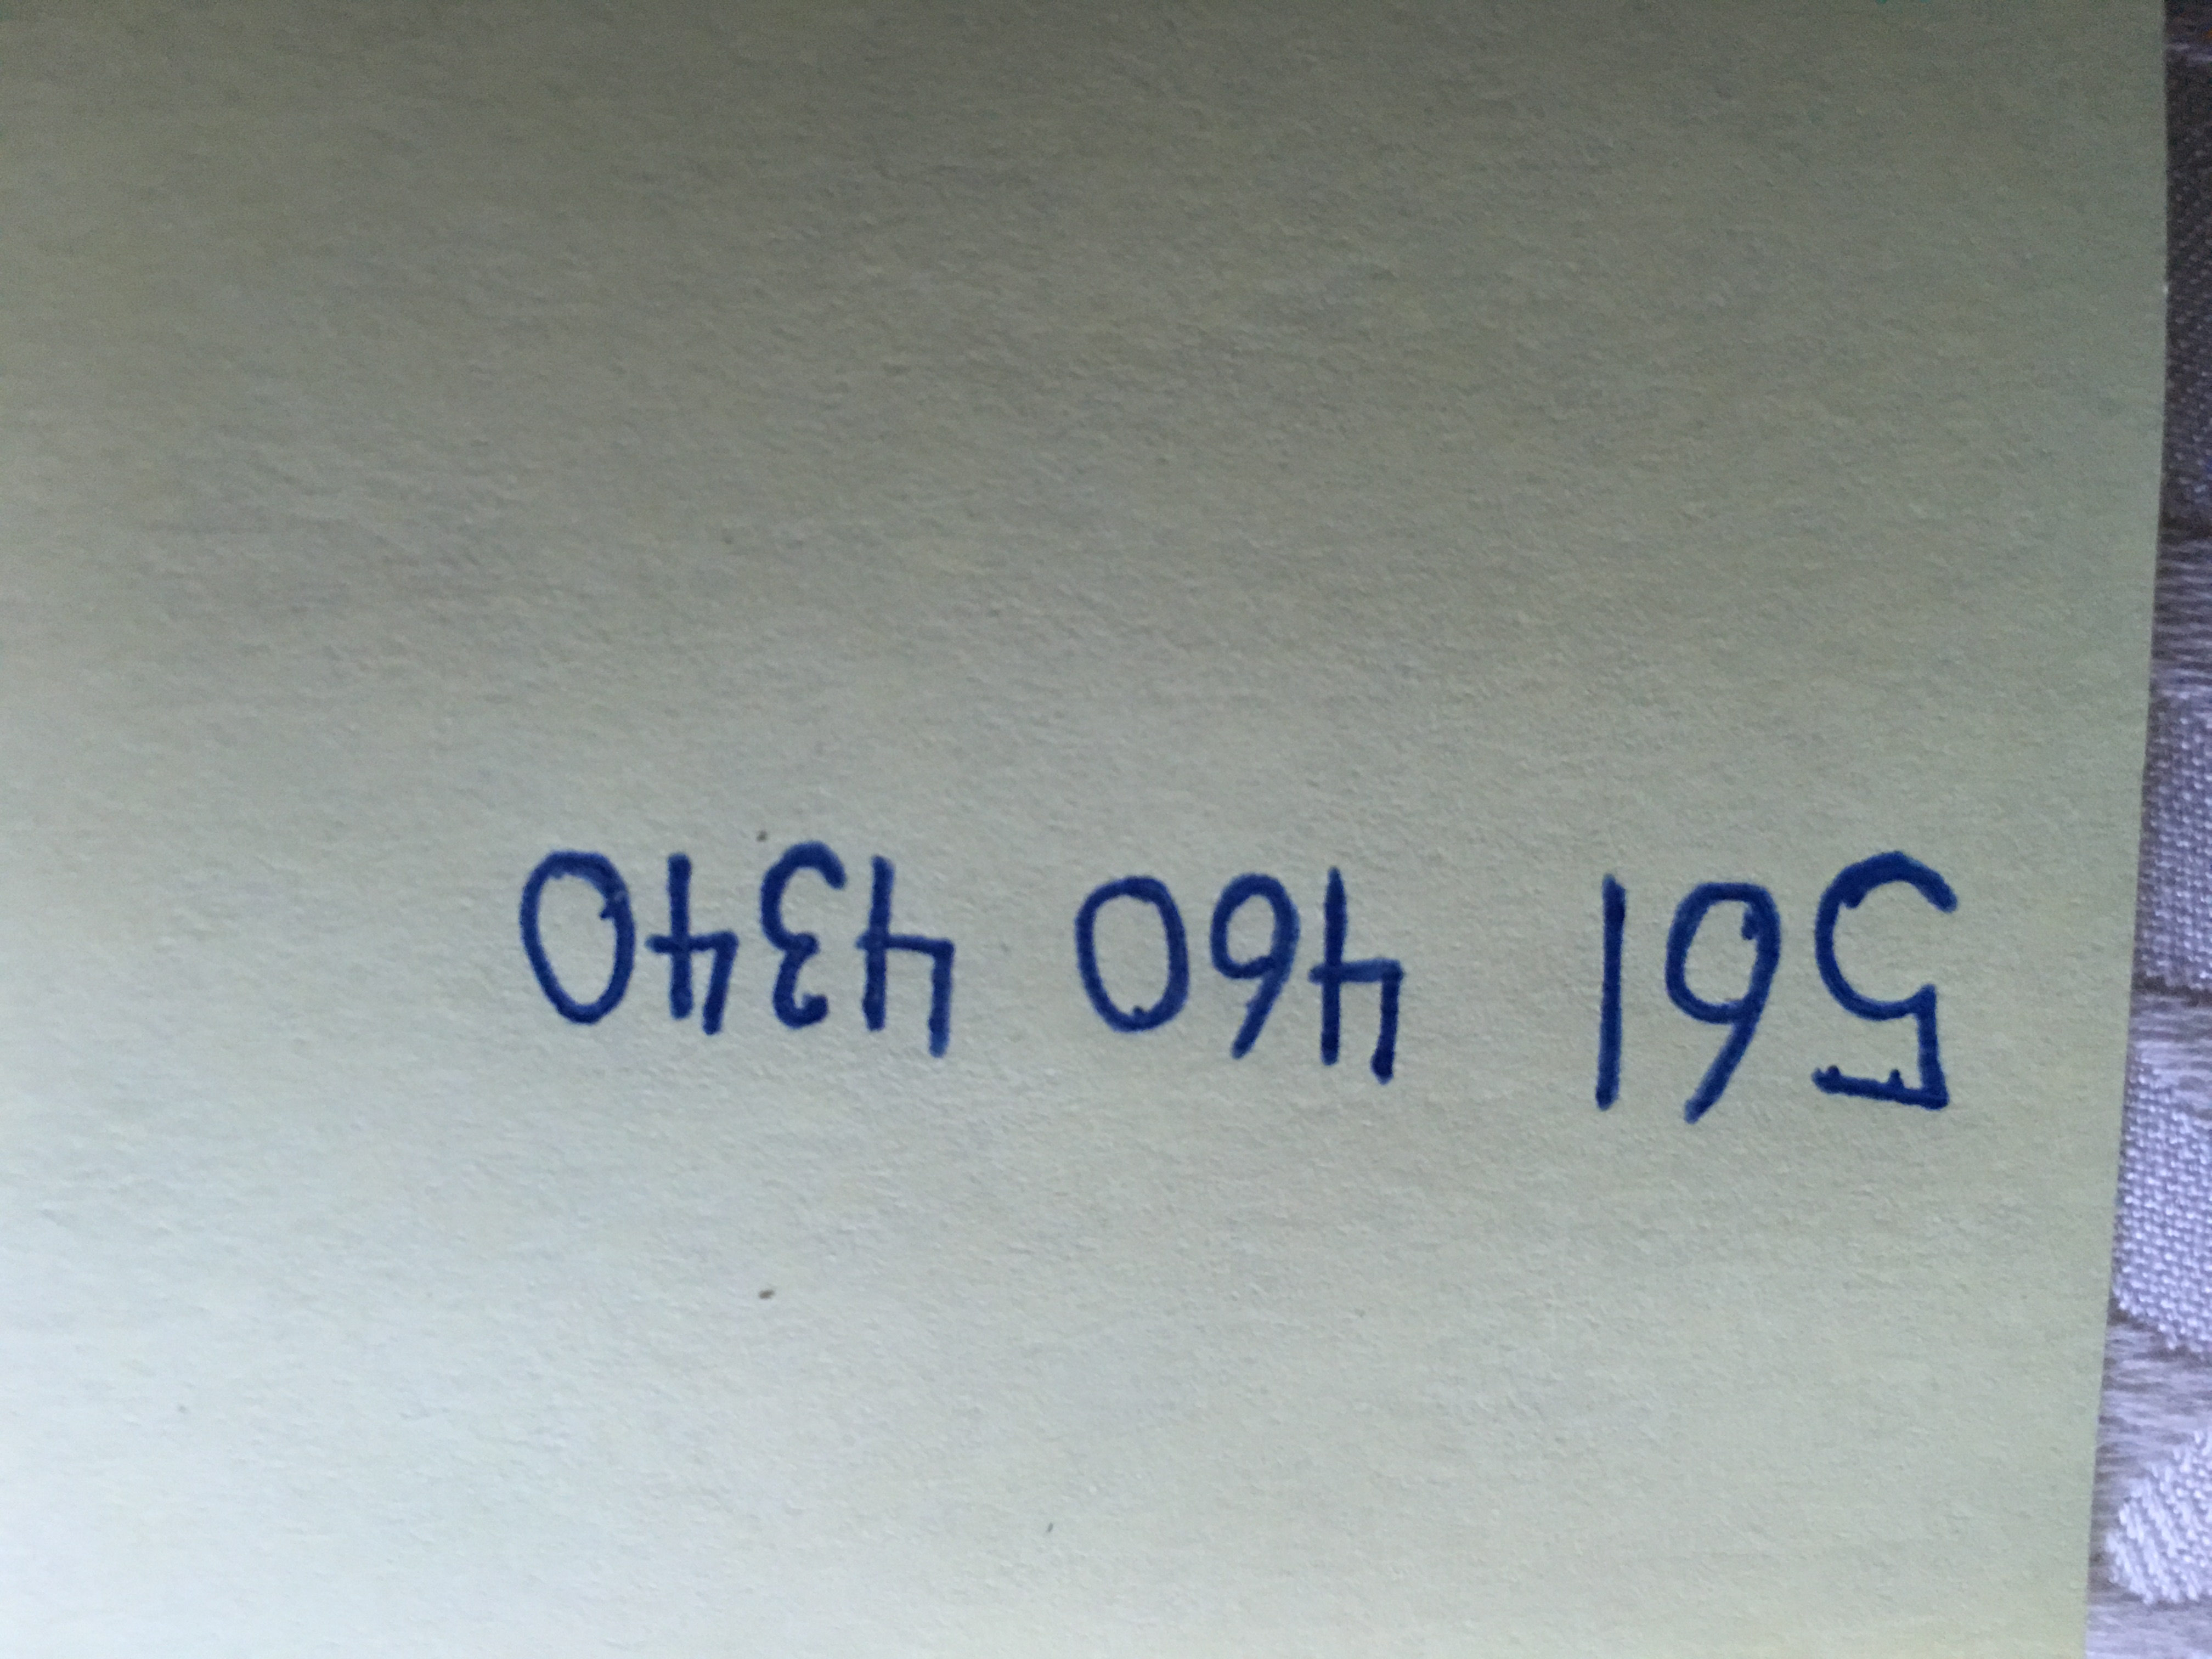 561 460 4340